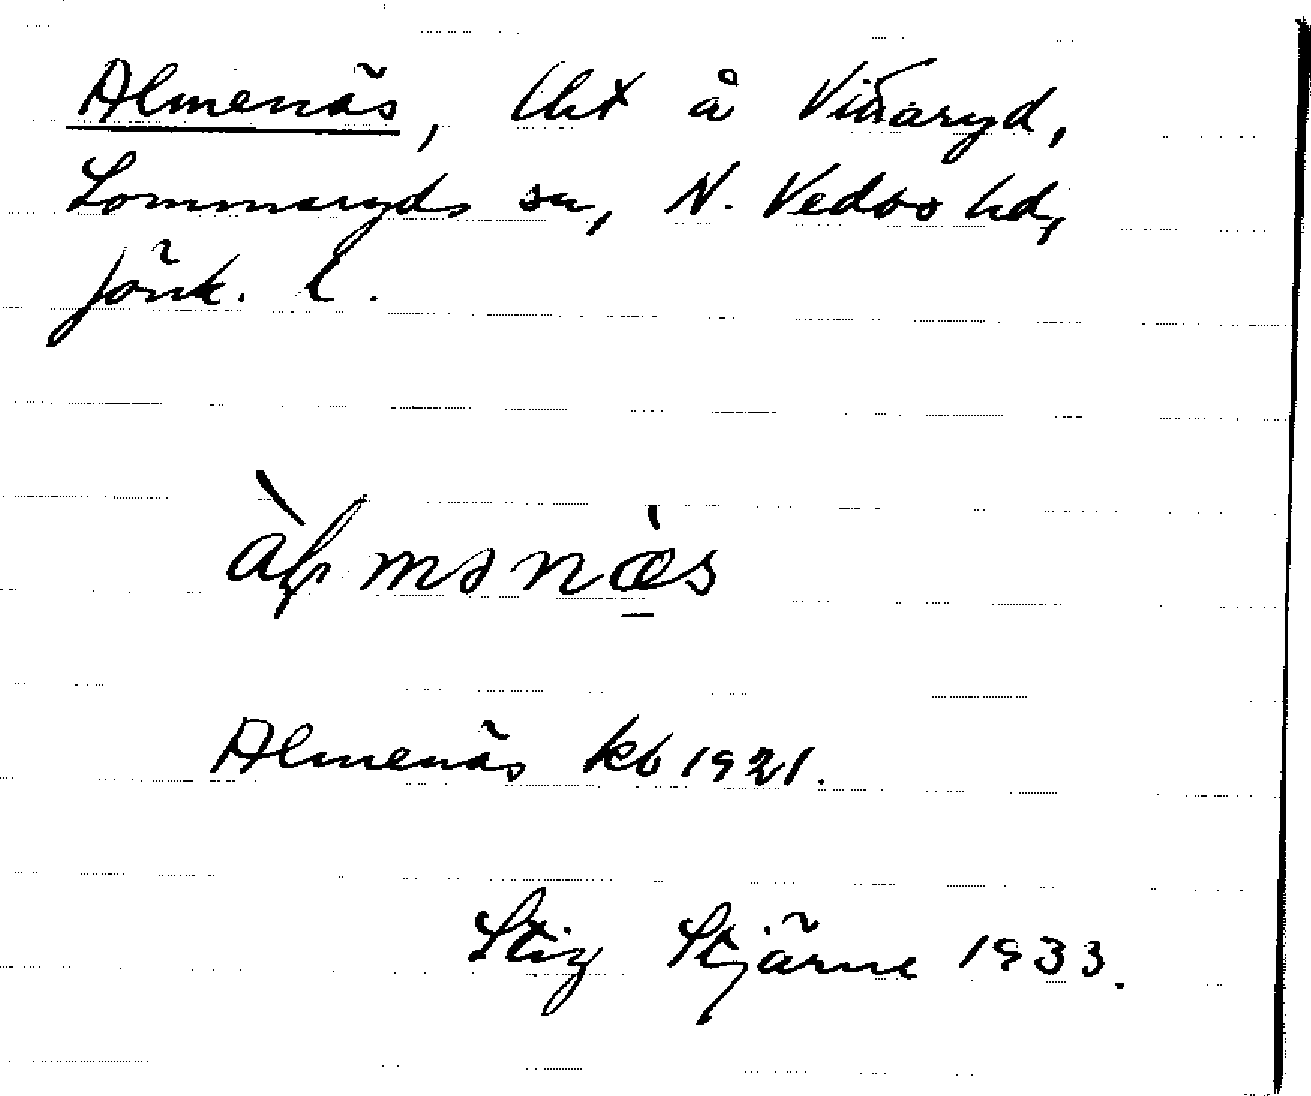 Almenäs, lht å Vibaryd,
Lommaryds sn, N. Vedbo hd,
Jönk. l.
àlmənæ̀s
Almenäs kb 1921.
Stig Stjärne 1933.